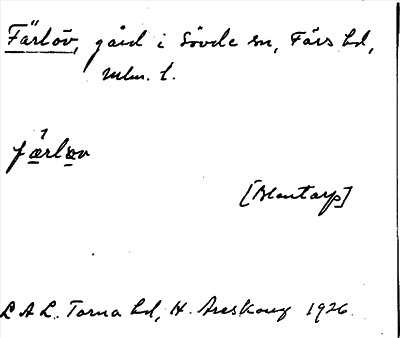 Färlöv, gård i Sövde sn, Färs hd,
mlm. l.
færløv
[Blentarp]
L A L. Torna hd, H. Areskoug 1926.